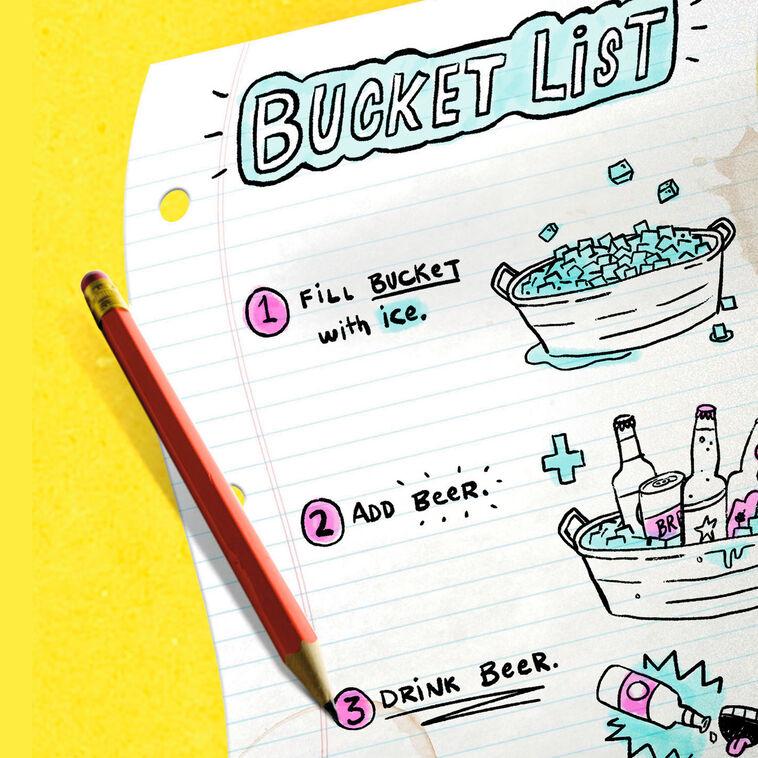 BUCKET LIST
1 FILL BUCKET
with ice.
2 ADD BEER.
3 DRINK BEER.